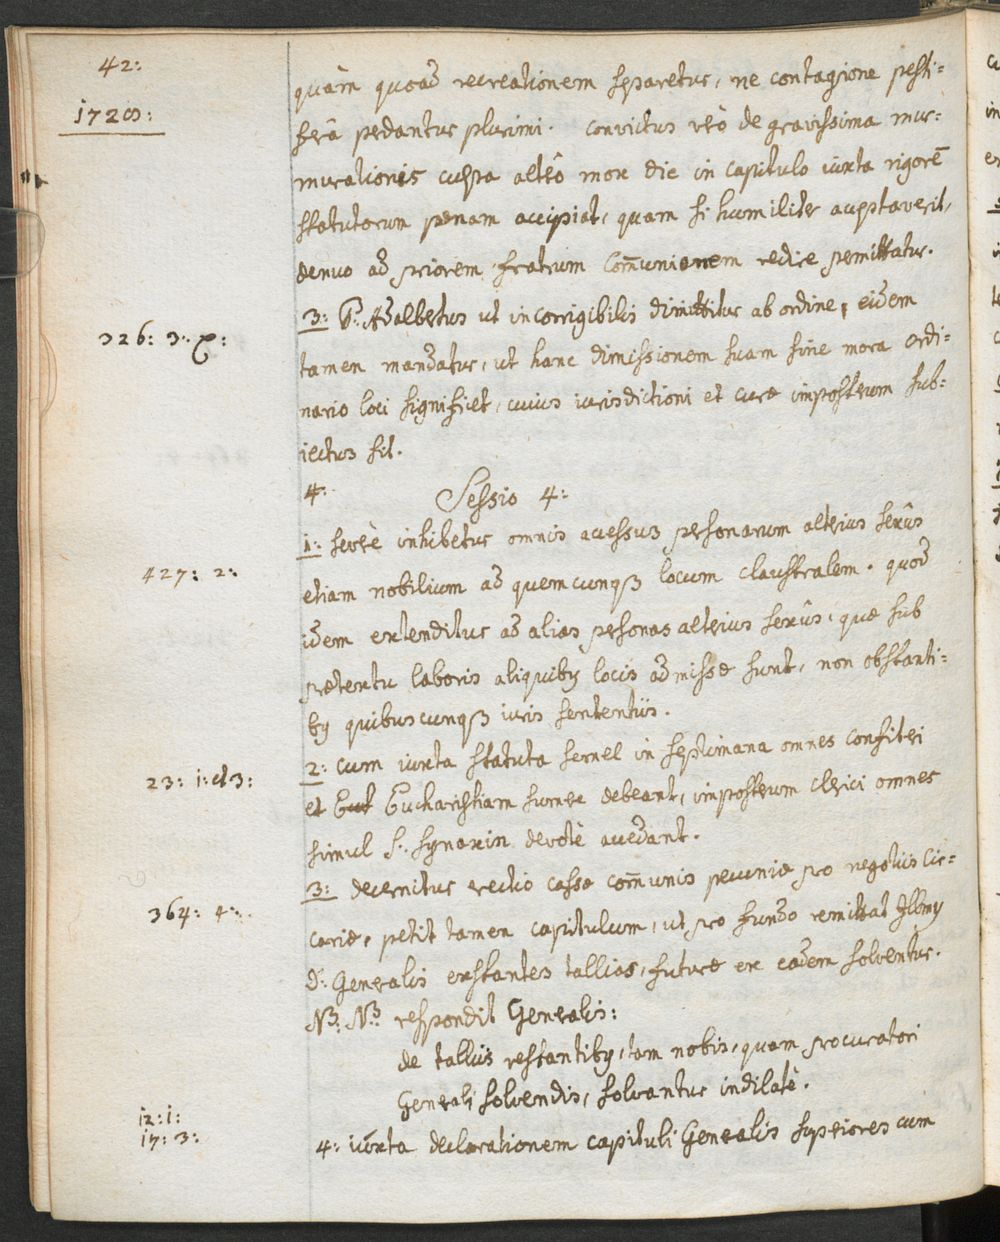 42:
1720:
quàm quoad recreationem separetur, ne contagione pesti=
ferâ pedantur plurimi. Convictus vêo de gravissima mur=
murationis culpa alteô mox die in capitulo iuxta rigorē
statutorum penam accipiat, quam si humiliter acceptaverit,
denuo ad priorem fratrum com̄unionem redire pemittatur.
326: 3.
3: P. Adalbertus ut incorrigibilis dimittitur ab ordine, eidem
tamen mandatur, ut hanc dimissionem suam sine mora ordi=
nario loci significet, cuius iurisdictioni et curæ imposterum sub=
iectus sit.
4. Sessio 4:
1: severè inhibetur omnis accessus personarum alterius sexûs
427: 2:
etiam nobilium ad quemcunqȝ locum claustralem. quod
idem extenditur ad alias personas alterius sexûs, quæ sub
prætextu laboris aliquiby locis admissæ sunt, non obstanti=
by quibuscunqȝ iuris sententiis.
23: 1: et 3:
2: cum iuxta statuta semel in septimana omnes confiteri
et Euch Eucharistiam sumere debeant, imposterum clerici omnes
simul S. synaxin devotè accedant.
3: decernitur erectio cassæ com̄unis pecuniæ pro negotiis Cir=
364: 4:
cariæ, petit tamen capitulum, ut pro fundo remittat Illmy
D. Generalis exstantes tallias, futuræ ex eadem solventur.
NB. NB. respondit Generalis:
de talliis restantiby, tam nobis, quam procuratori
Generali solvendis, solvantur indilatè.
12: 1:
17: 3:
4: iuxta declarationem capituli Generalis superiores cum